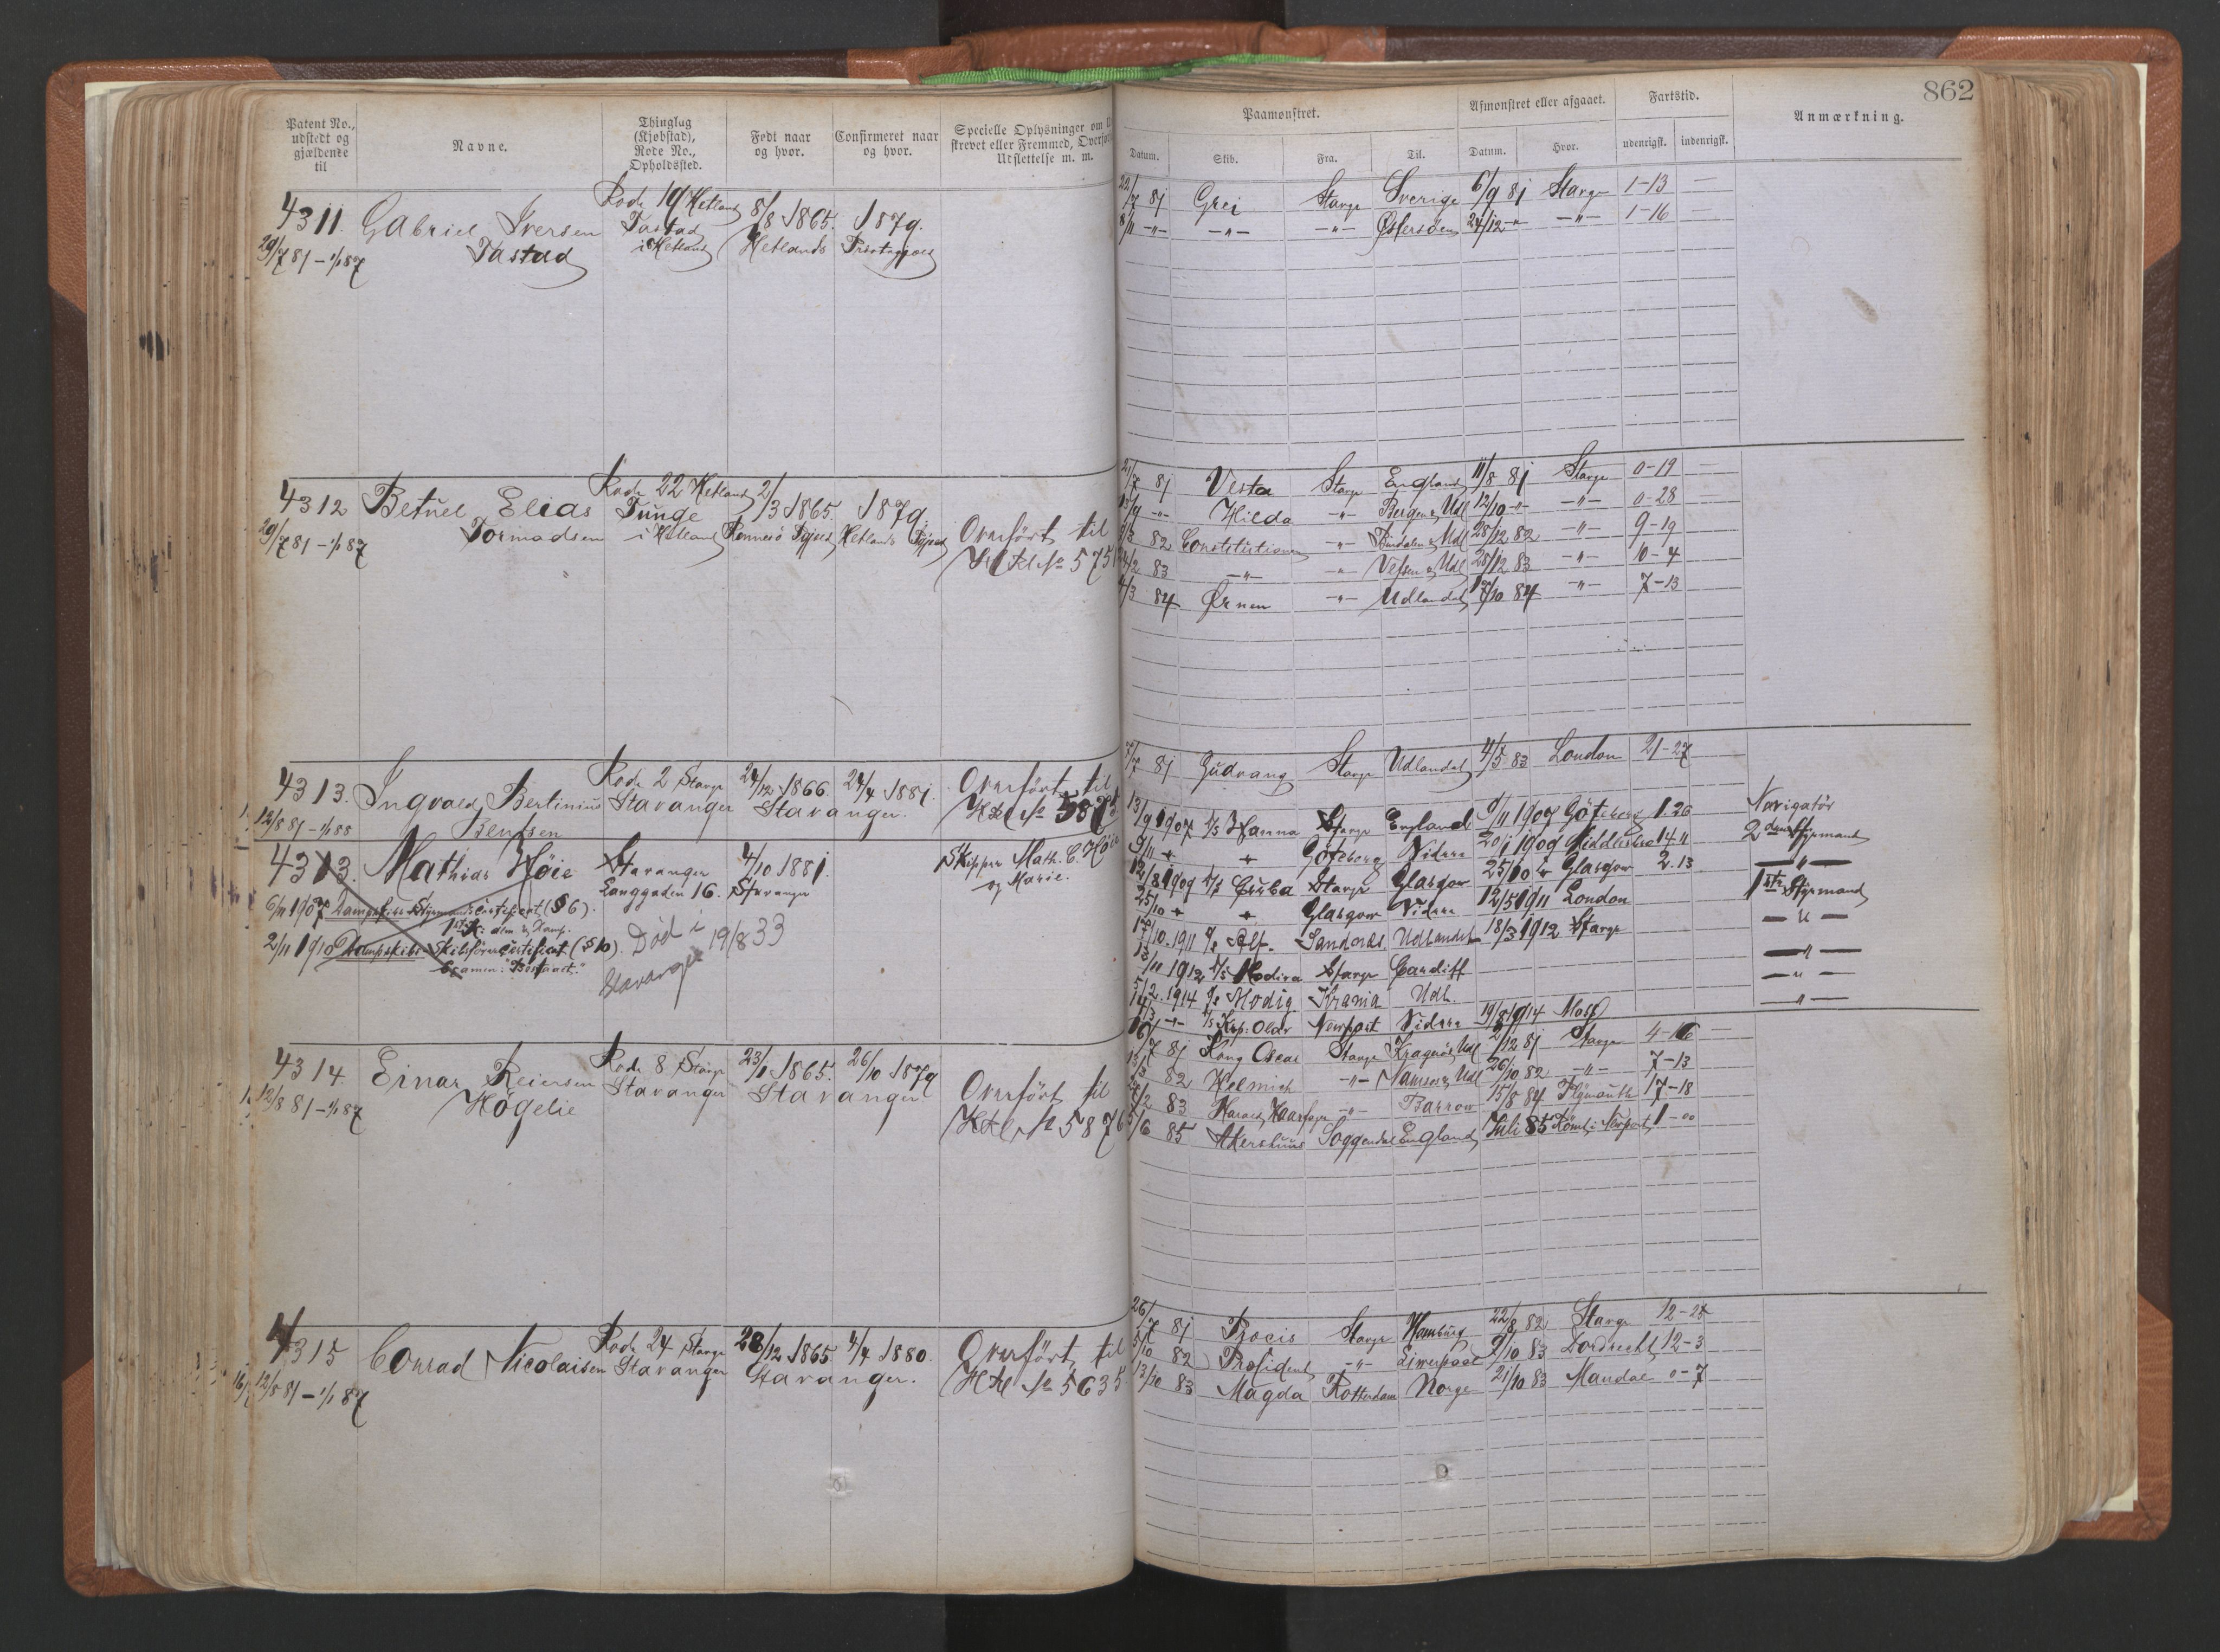 862
Patent No., udstedt og gjældende til
Navne.
Thinglag (Kjøbstad), Rode No., Opholdssted.
Født naar og hvor.
Confirmeret naar og hvor.
Specielle Oplysninger om
skrevet eller Fremmed, Overført
Udslettelse m. m.
Paamønstret.
Afmønstret eller afgaaet.
Fartstid.
Anmærkning.
Datum. Skib. Fra. Til. Datum. Hvor. udenrigsk. indenrigsk.
4311. Gabriel Iversen Rode 19 Hetland 8/8 1865. 1879.
29/7 81 – 1/1 87 Tastad Tastad i Hetland Hetlands Præstegjæld
22/7 81 Grei Stavgr Sverige 6/9 81 Stavgr 1-13 —
8/11 -"- -"- -"- Østersöen 24/12 -"- -"- 1-16 —
4312 Betuel Elias Rode 22 Hetland 2/3 1865. 1879.
29/7 81 – 1/1 87 Tormodsen Tunge i Hetland Rennesö Pgjæld Hetlands Pgjæld
Overført til
H Kl No 575
21/7 81 Vesta Stavgr England 11/8 81 Stavgr 0-19 —
13/9 -"- Hilda -"- Bergen & Udl 12/10 -"- -"- 0-28
82 Constitutionen -"- 28/12 82 -"- 9-19
24/2 83 -"- -"- Vefsen & Udl 28/12 83 -"- 10-4
4/3 84 Ørnen -"- Udlandet 17/10 84 -"- 7-13
4313. Ingvald Bertinius Rode 2 Stavgr 24/12 1866. 24/4 1881.
12/8 81 – 1/1 88 Bentsen Stavanger Stavanger.
Overført til
H Kl No 587
7/7 81 Gudvang Stavgr Udlandet 4/5 83 London 21-27
4313. Mathias Høie Stavanger 4/10 1881.
Langgaden 16. Stavanger
Skipper Math. C. Høie
og Marie.
6/11 1907 Dampskibs Styrmandscertifikat (§ 6).
2/11 1910 Dampskibs Skibsförercertifikat (§ 10).
Examen: "Bestaaet."
Död i Stavanger 19/8 33
13/9 1907 D/S Hanna Stavgr England 9/11 1907 Göteborg 1.26 Navigatör
9/11 " " Göteborg Videre 20/1 1909 Middlesbro 14.11 2den Styrmand
12/8 1909 D/S Cuba Stavgr Glasgow 25/10 " Glasgow 2.13 —"—
25/10 " " Glasgow Videre 12/5 1911 London 1ste Styrmand
17/10. 1911 D/S Alf. Sandnes Udlandet 18/3 1912 Stavgr —"—
13/11 1912 D/S Modiva Stavgr Cardiff —"—
5/2. 1914 D/S Modig Krania Udl. —"—
-"- D/S Newport Videre 19/8 1914 Moss —"—
4314. Einar Reiersen Rode 8 Stavgr 23/1 1865. 26/10 1879
12/8 81 – 1/1 87 Högelie Stavanger Stavanger
Overført til
H Kl No 5876
16/7 81 Kong Oscar Stavgr Kragerö & Udl 2/12 81 Stavgr 4-16 —
82 Helmich -"- Namsos & Udl 26/10 82 -"- 7-13
2/2 83 Harald Haarfager -"- Barrow 15/8 84 Plymouth 17-18
5/6 85 Akershuus Soggendal England Juli 85 Römt i Newport 1-00
4315 Conrad Nicolaisen Rode 24 Stavgr 28/12 1865 4/4 1880.
12/8 81 – 1/1 87 Stavanger Stavanger.
Overført til
H Kl No 5635
26/7 81 Procis Stavgr Hamburg 22/8 82 Stavgr 12-27
5/10 82 President -"- Liverpool 9/10 83 Dordrecht 12-3
13/10 83 Magda Rotterdam Norge 21/10 83 Mandal 0-7